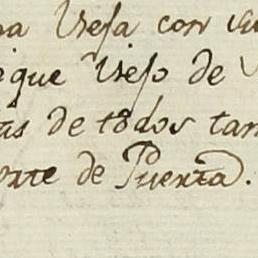 a Vieja con
que Viejo de
as de todos tam
orte de Puerta.